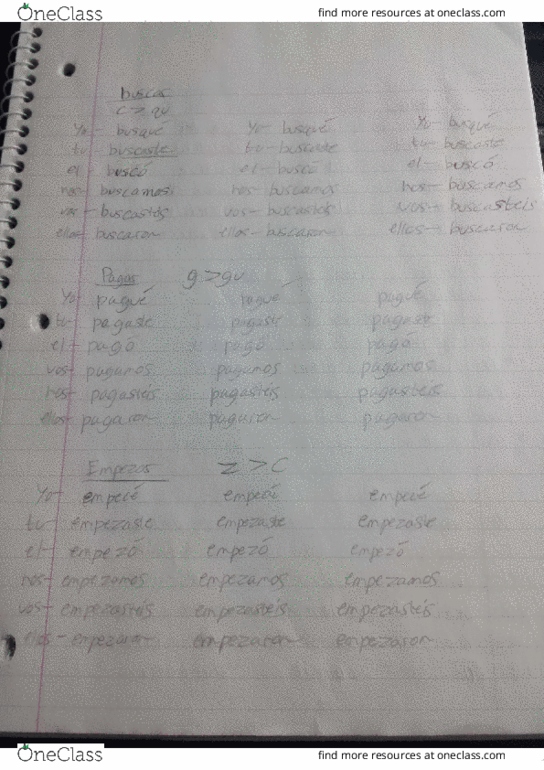 OneClass find more resources at oneclass.com
buscar
c > qu
Yo - busqué Yo - busqué Yo - busqué
tu - buscaste tu - buscaste tu - buscaste
el - buscó el - buscó el - buscó
nos - buscamos nos - buscamos nos - buscamos
vos - buscasteis vos - buscasteis vos - buscasteis
ellos - buscaron ellos - buscaron ellos - buscaron
Pagar g > gu
Yo - pagué pagué pagué
tu - pagaste pagaste pagaste
el - pagó pagó pagó
vos - pagamos pagamos pagamos
nos - pagasteis pagasteis pagasteis
ellos - pagaron pagaron pagaron
Empezar z > c
Yo - empecé empecé empecé
tu - empezaste empezaste empezaste
el - empezó empezó empezó
nos - empezamos empezamos empezamos
vos - empezasteis empezasteis empezasteis
ellos - empezaron empezaron empezaron
OneClass find more resources at oneclass.com